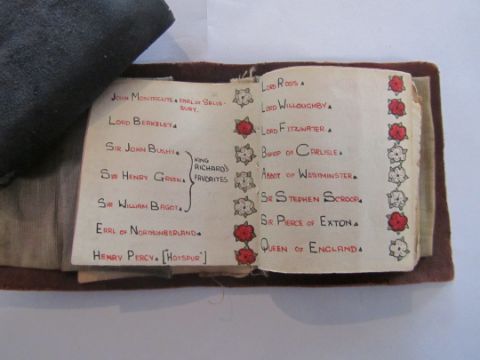 John Montacute. Earl of Salis-
bury.
Lord Berkeley.
Sir John Bushy.
Sir Henry Green.
Sir William Bagot.
King
Richard's
Favorites
Earl of Northumberland.
Henry Percy. [Hotspur]
Lord Ross.
Lord Willoughby.
Lord Fitzwater.
Bishop of Carlisle.
Abbot of Westminster.
Sir Stephen Scroop.
Sir Pierce of Exton.
Queen of England.